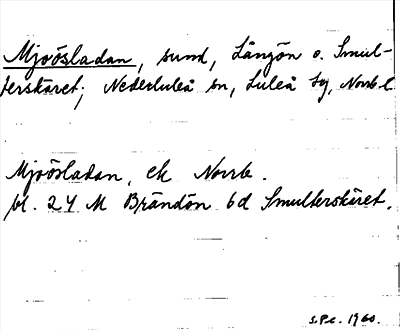 Mjoösladan, sund, Långön o. Smul-
terskäret; Nederluleå sn, Luleå tg, Norrb. l.
Mjoösladan, ek Norrb.
bl. 24 M Brändön 6d Smulterskäret.
S.P.e. 1960.